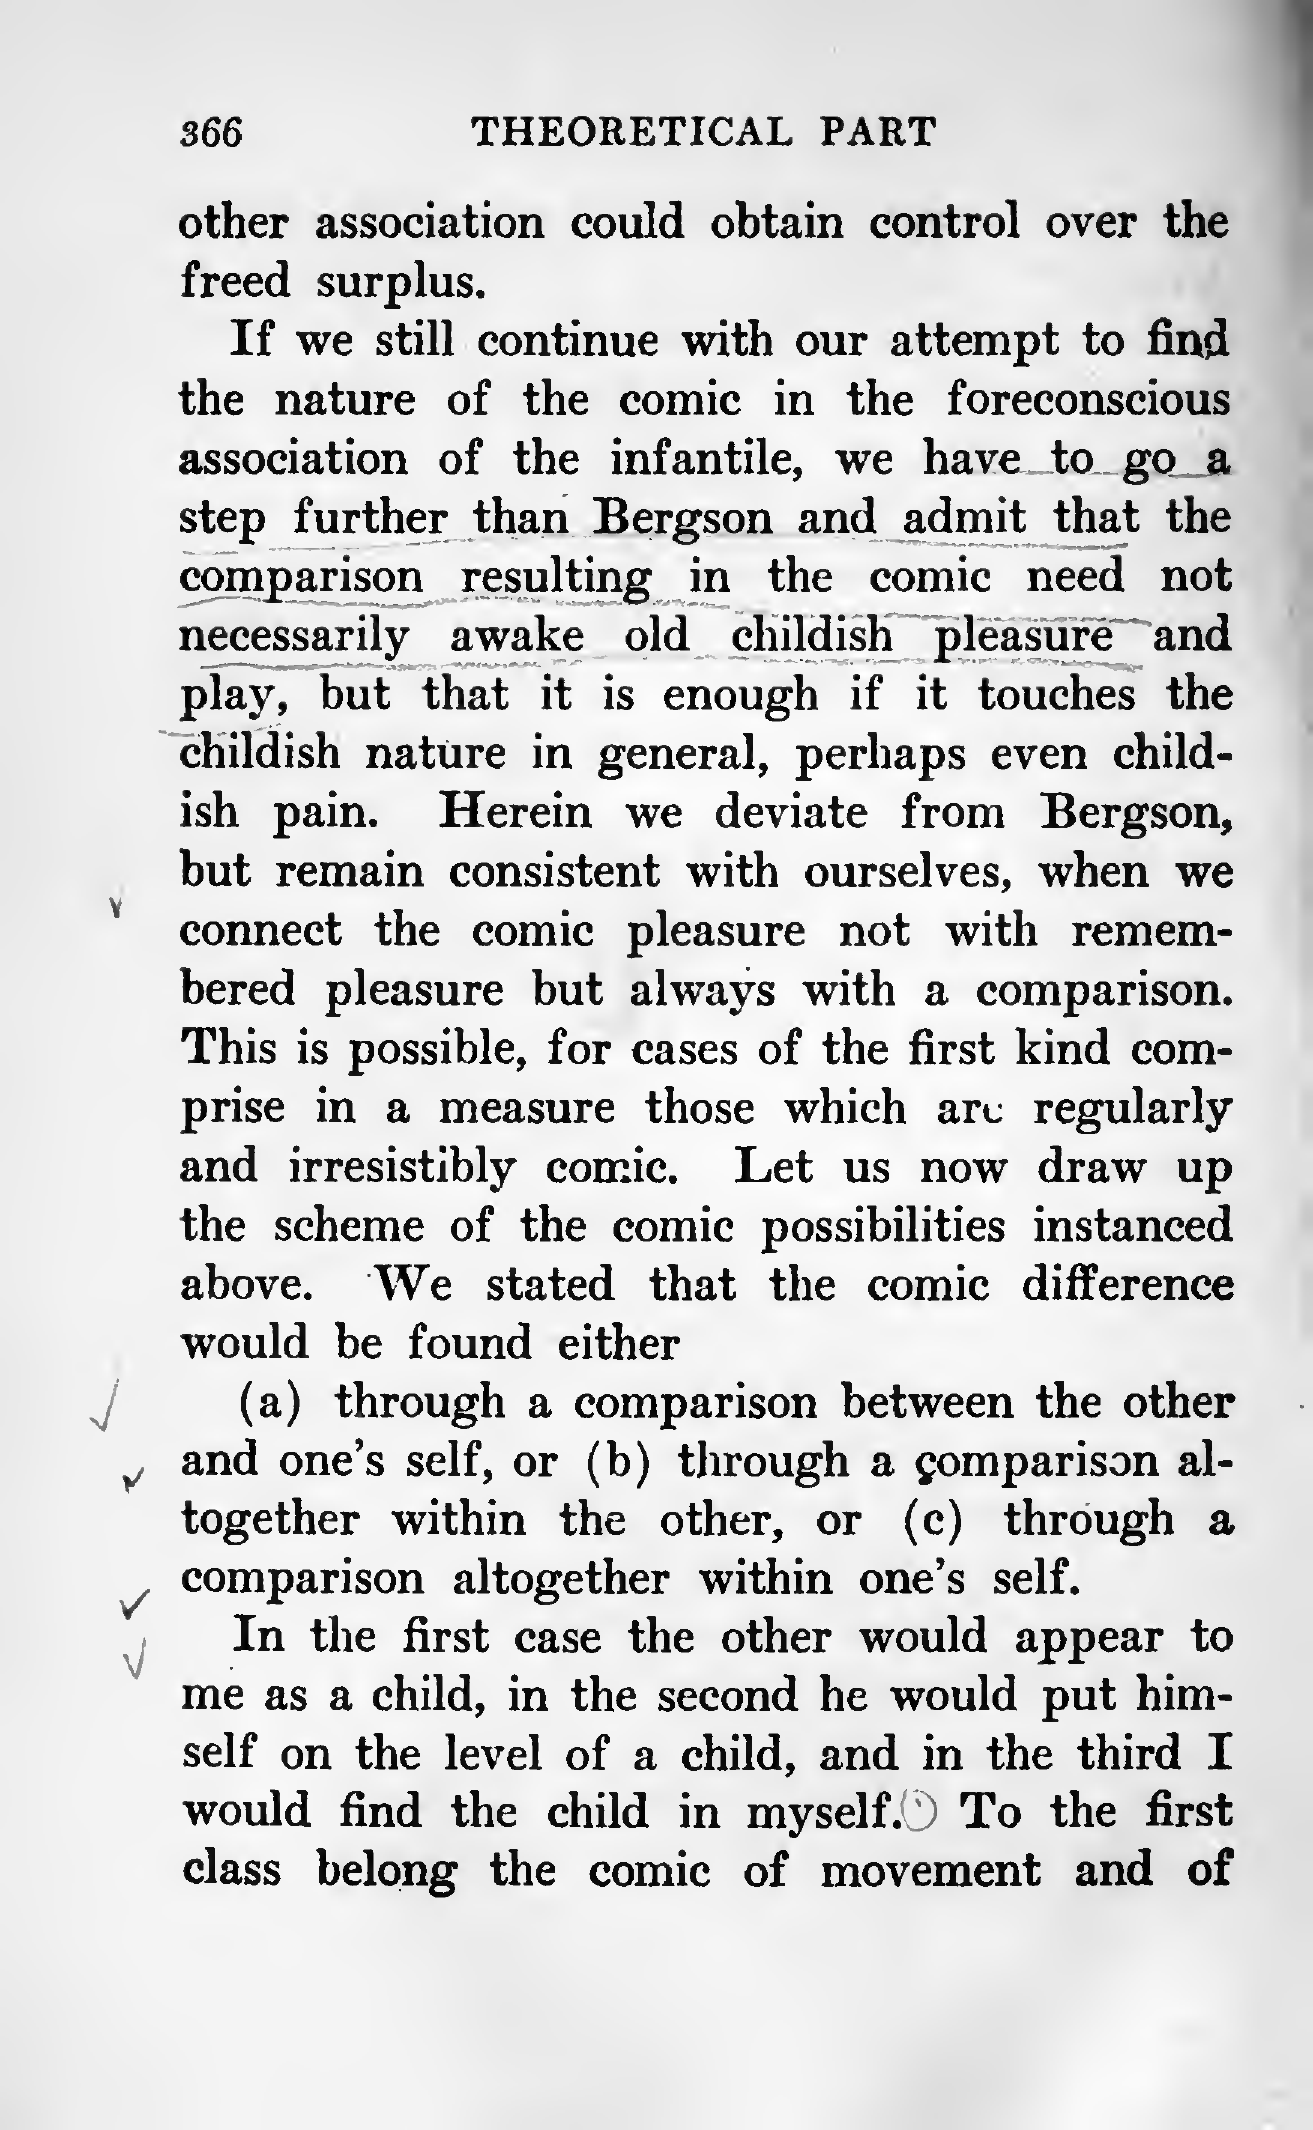 366 THEORETICAL PART
other association could obtain control over the
freed surplus.
If we still continue with our attempt to find
the nature of the comic in the foreconscious
association of the infantile, we have to go a
step further than Bergson and admit that the
comparison resulting in the comic need not
necessarily awake old childish pleasure and
play, but that it is enough if it touches the
childish nature in general, perhaps even child-
ish pain. Herein we deviate from Bergson,
but remain consistent with ourselves, when we
connect the comic pleasure not with remem-
bered pleasure but always with a comparison.
This is possible, for cases of the first kind com-
prise in a measure those which are regularly
and irresistibly comic. Let us now draw up
the scheme of the comic possibilities instanced
above. We stated that the comic difference
would be found either
(a) through a comparison between the other
and one's self, or (b) through a comparison al-
together within the other, or (c) through a
comparison altogether within one's self.
In the first case the other would appear to
me as a child, in the second he would put him-
self on the level of a child, and in the third I
would find the child in myself. To the first
class belong the comic of movement and of